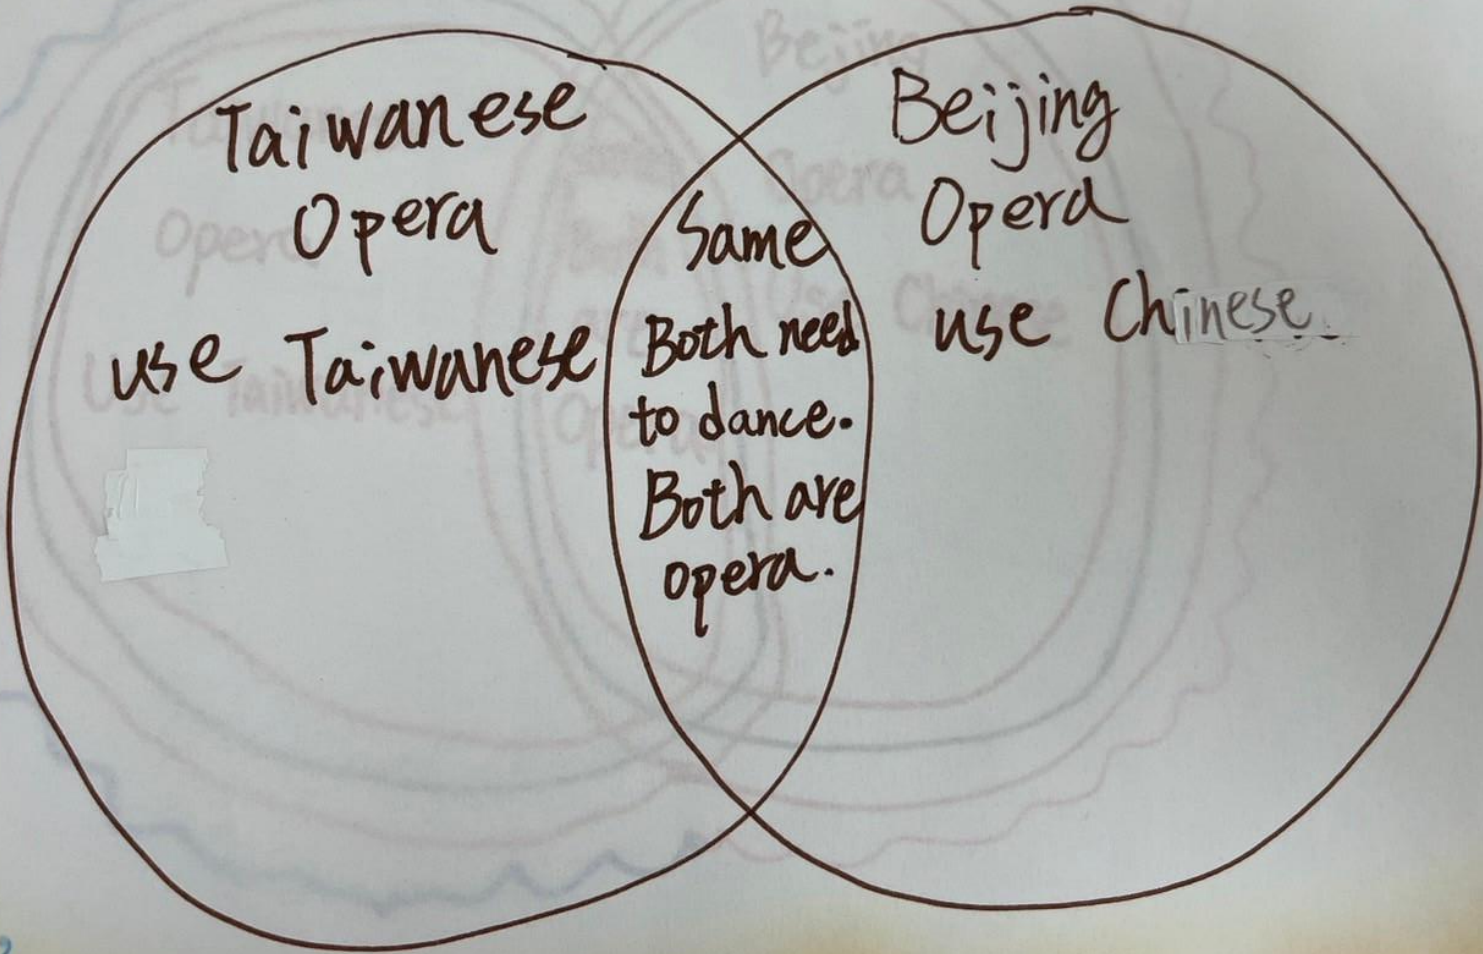 Taiwanese
Opera
use Taiwanese
Same
Both need
to dance.
Both are
opera.
Beijing
Opera
use Chinese.